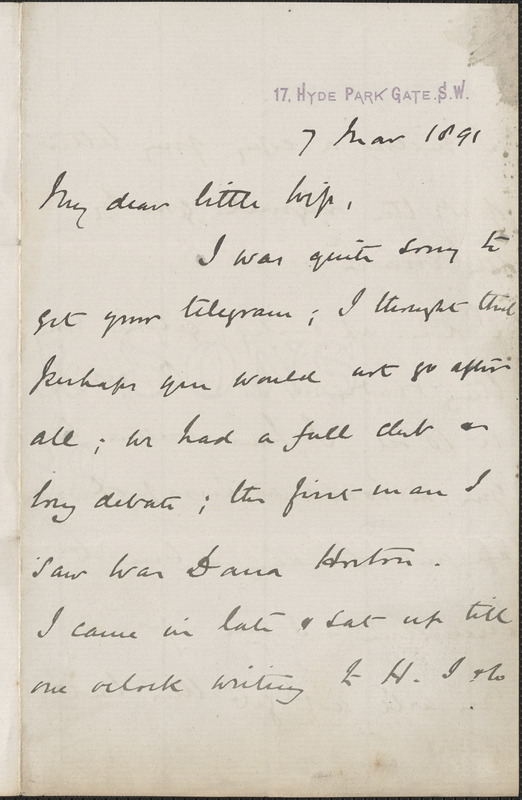 17, HYDE PARK GATE. S.W.
7 Mar 1891
My dear little wife,
I was quite sorry to
get your telegram; I thought that
perhaps you would not go after
all; we had a full club &
long debate; the first man I
saw was Dana Horton.
I came in late & sat up till
one oclock writing to H. I